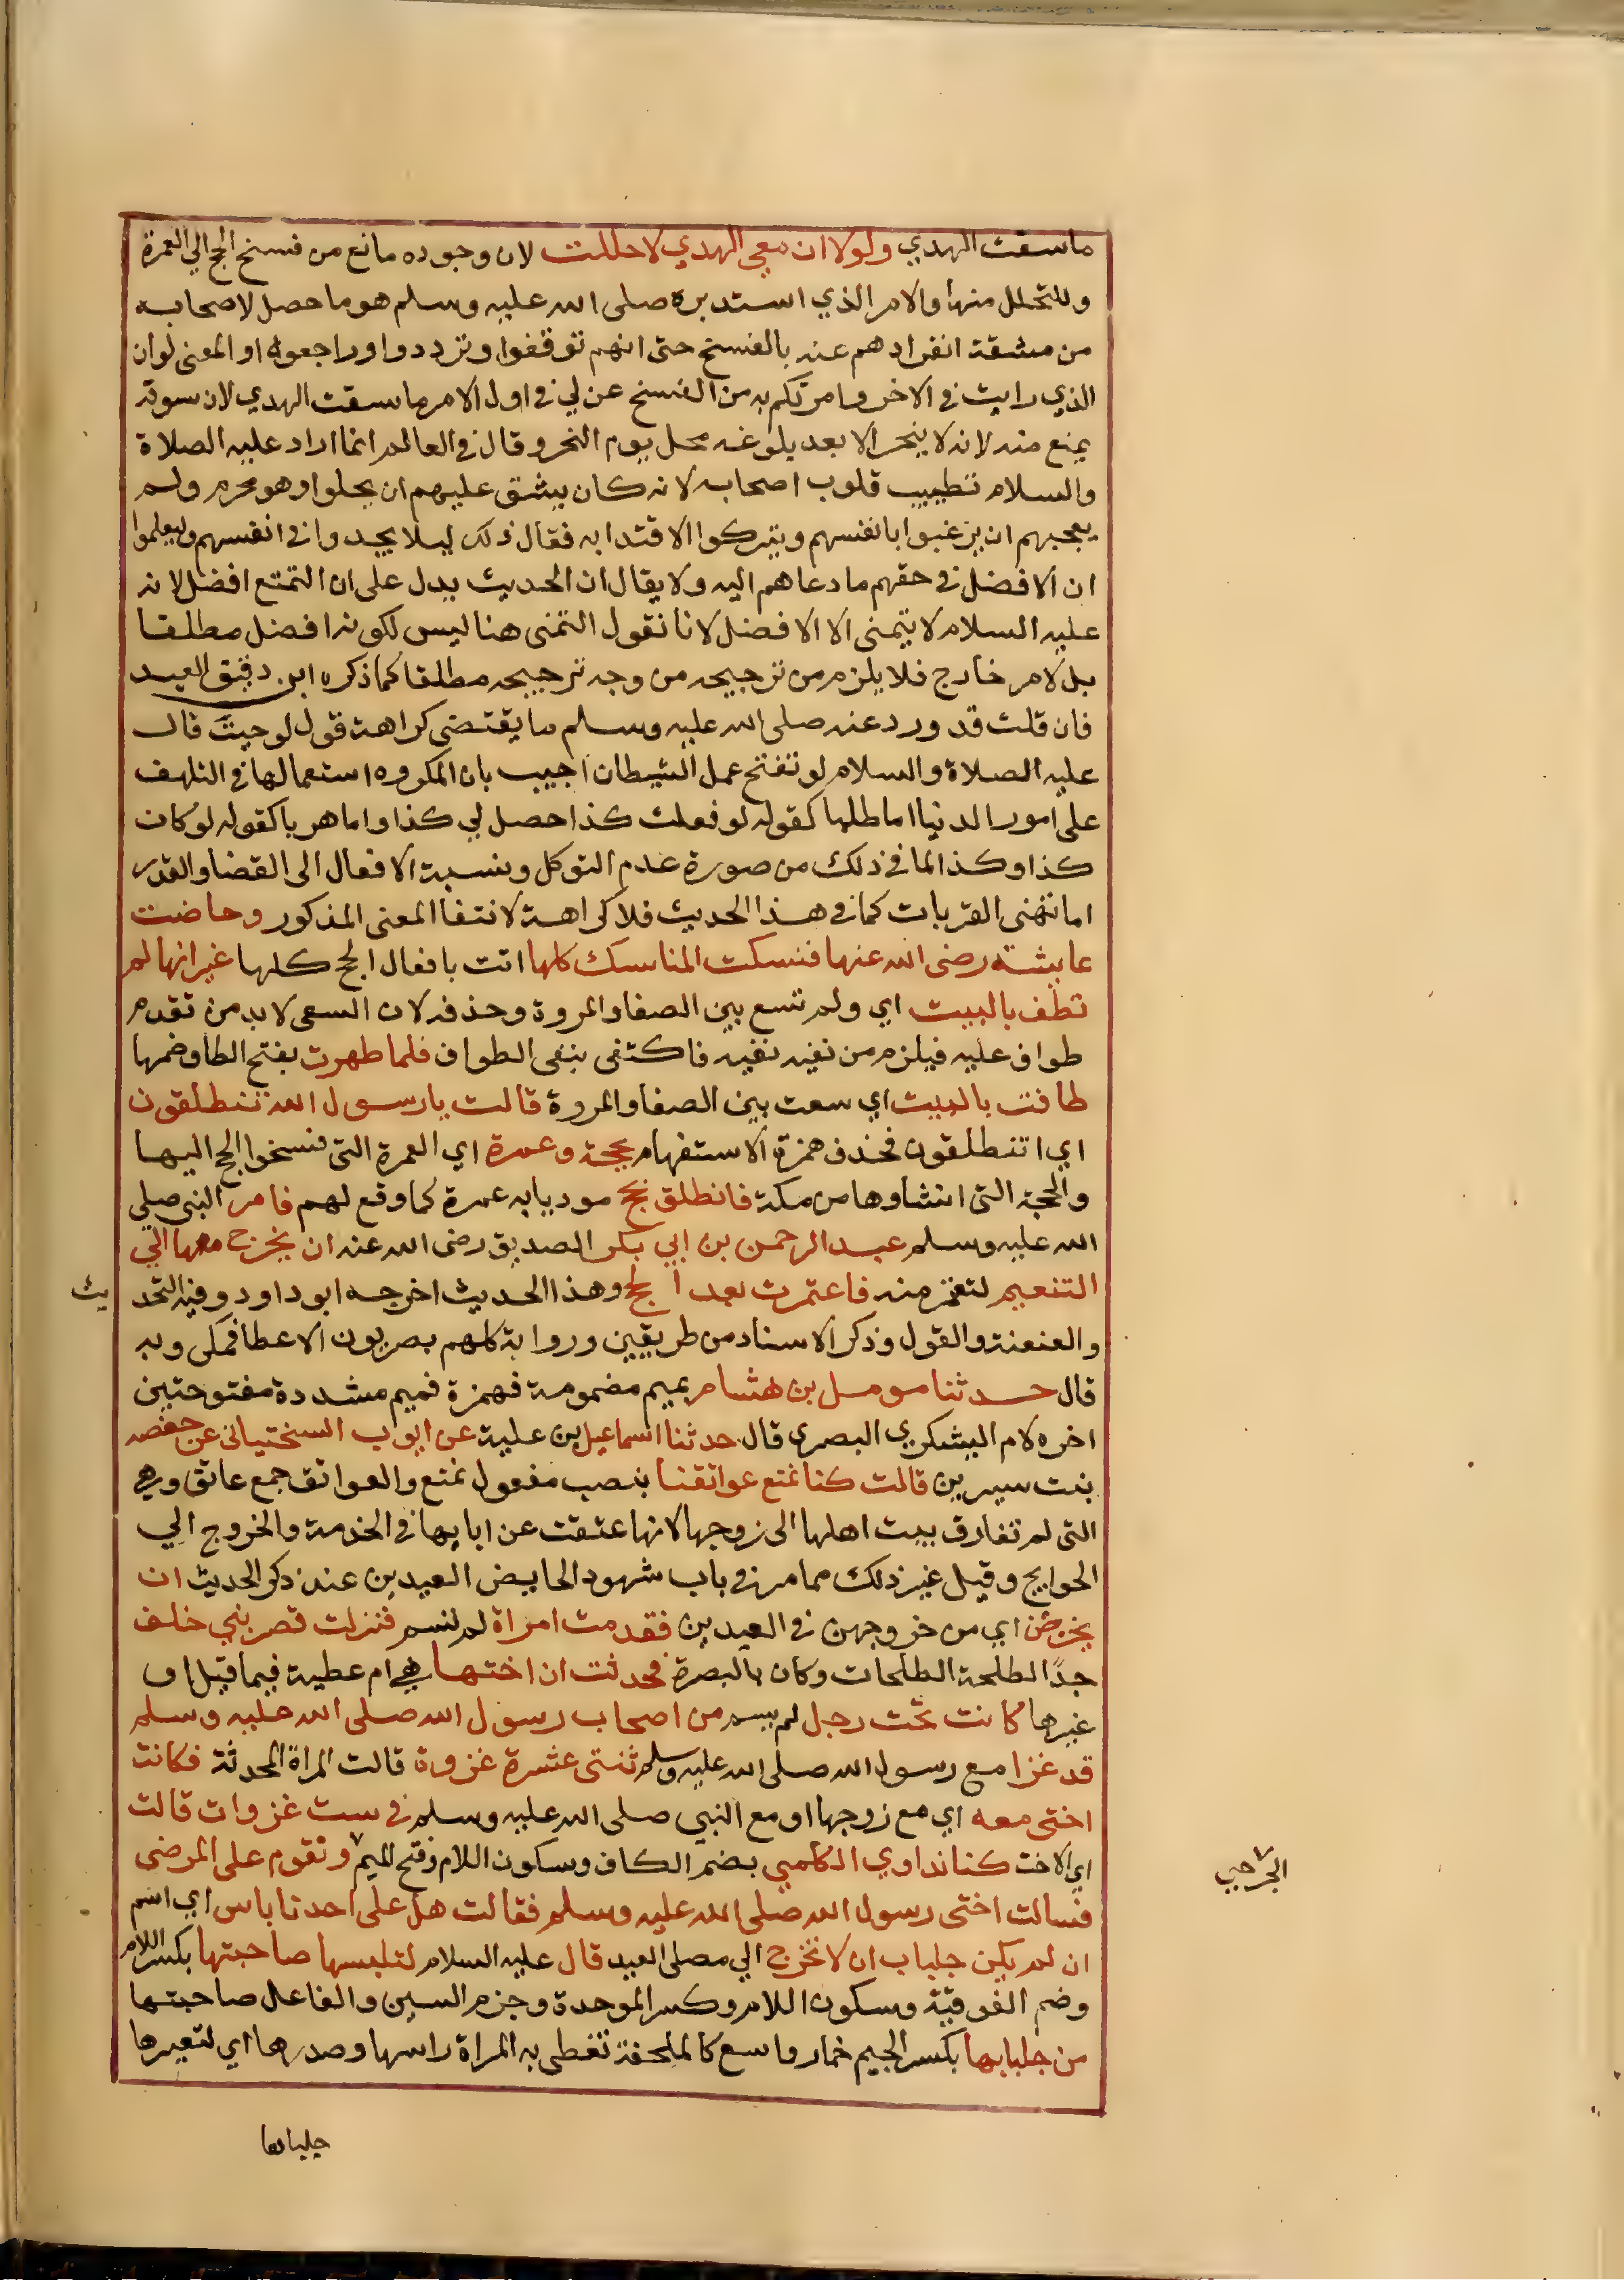 ما سقت الهدي ولولا ان معي الهدي لاحللت لان وجوده مانع من فسخ الحج الي العمرة
وللتحلل منها والامر الذي استدبره صلى الله عليه وسلم هو ما حصل لاصحابه
من مشقة انفرادهم عنه بالفسخ حتى انهم توقفوا وترددوا وراجعوه او المعنى لو ان
الذي رايت في الاخر وامرتكم به من الفسخ عن لي في اول الامر ما سقت الهدي لان سوقه
يمنع منه لانه لا ينحر الا بعد بلوغه محل يوم النحر وقال في العالم انما اراد عليه الصلاة
والسلام تطييب قلوب اصحابه لانه كان يشق عليهم ان يحلوا وهو محرم ولم
يعجبهم ان يرغبوا بانفسهم ويتركوا الاقتدا به فقال ذلك ليلا يجدوا في انفسهم وليعلموا
ان الافضل في حقهم ما دعاهم اليه ولا يقال ان الحديث يدل على ان التمتع افضل لانه
عليه السلام لا يتمنى الا الافضل لانا نقول التمنى هنا ليس لكونه افضل مطلقا
بل لامر خارج فلا يلزم من ترجيحه من وجه ترجيحه مطلقا كما ذكره ابن دقيق العيد
فان قلت قد ورد عنه صلى الله عليه وسلم ما يقتضى كراهة قول لو حيث قال
عليه الصلاة والسلام لو تفتح عمل الشيطان اجيب بان المكروه استعمالها في التلهف
على امور الدنيا اما طلبا كقوله لو فعلت كذا حصل لي كذا واما هربا كقوله لو كان
كذا وكذا لما في ذلك من صورة عدم التوكل ونسبة الافعال الى القضا والقدر
اما تمنى القربات كما في هذا الحديث فلا كراهة لانتفا المعنى المذكور وحاضت
عايشة رضى الله عنها فنسكت المناسك كلها اتت بافعال الحج كلها غير انها لم
تطف بالبيت اي ولم تسع بين الصفا والمروة وحذفه لان السعى لابد من تقدم
طواف عليه فيلزم من نفيه نفيه فاكتفى بنفى الطواف فلما طهرت بفتح الطا وضمها
طافت بالبيت اي سعت بين الصفا والمروة قالت يا رسول الله تنطلقون
اي اتنطلقون فحذف همزة الاستفهام بحجة وعمرة اي العمرة التى فسخوا الحج اليها
والحجة التى انشاوها من مكة فانطلق بحج موديا به عمرة كما وقع لهم فامر النبى صلي
الله عليه وسلم عبد الرحمن بن ابي بكر الصديق رضى الله عنه ان يخرج معها الي
التنعيم لتعتمر منه فاعتمرت بعد الحج وهذا الحديث اخرجه ابو داود وفيه التحد
يث
والعنعنة والقول وذكر الاسناد من طريقين ورواته كلهم بصريون الا عطا فمكى وبه
قال حدثنا مومل بن هشام بميم مضمومة فهمزة فميم مشددة مفتوحتين
اخره لام اليشكري البصرى قال حدثنا اسماعيل بن علية عن ايوب السختيانى عن حفصه
بنت سيرين قالت كنا نمنع عواتقنا بنصب مفعول نمنع والعواتق جمع عاتق وهي
التى لم تفارق بيت اهلها الى زوجها لانها عتقت عن ابايها في الخدمة والخروج الي
الحوايج وقيل غير ذلك مما مر في باب شهود الحايض العيدين عند ذكر الحديث ان
يخرجن اي من خروجهن في العيدين فقدمت امراة لم تسم فنزلت قصر بني خلف
جد الطلحة الطلحات وكان بالبصرة فحدثت ان اختها هي ام عطية فيما قيل او
غيرها كانت تحت رجل لم يسم من اصحاب رسول الله صلى الله عليه وسلم
قد غزا مع رسول الله صلى الله عليه وسلم ثنتى عشرة غزوة قالت المراة المحدثة فكانت
اختى معه اي مع زوجها او مع النبي صلى الله عليه وسلم في ست غزوات قالت
اي الاخت كنا نداوي الكلمي بضم الكاف وسكون اللام وفتح الميم ونقوم على المرضى
الجرحي
فسالت اختى رسول الله صلى الله عليه وسلم فقالت هل على احدنا باس اي اثم
ان لم يكن جلباب ان لا تخرج الي مصلى العيد قال عليه السلام لتلبسها صاحبتها بكسر اللام
وضم الفوقية وسكون اللام وكسر الموحدة وجزم السين والفاعل صاحبتها
من جلبابها بكسر الجيم خمار واسع كالملحفة تغطى به المراة راسها وصدرها اي لتعيرها
جلبابها